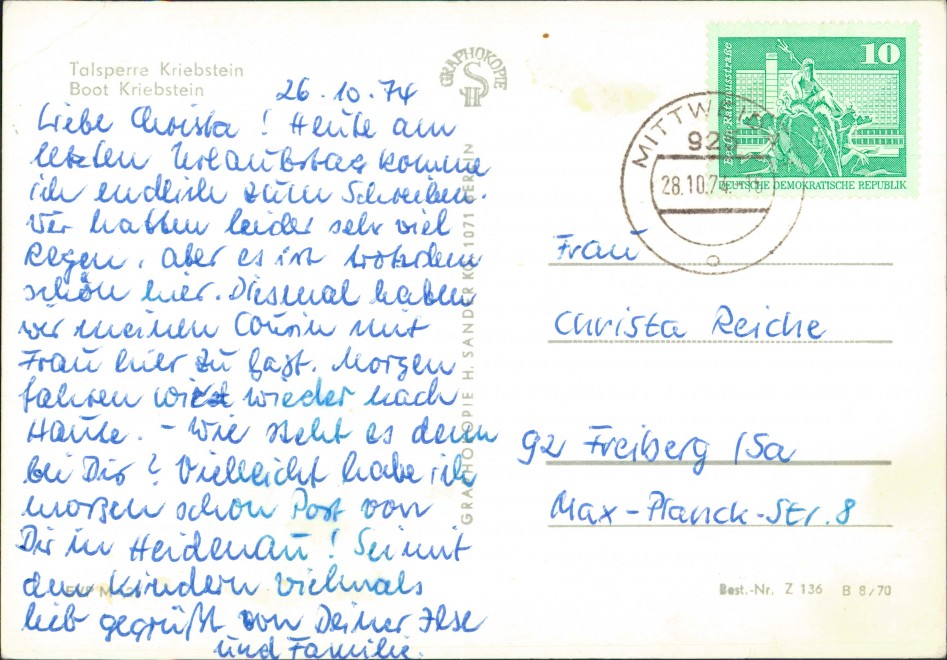 Talsperre Kriebstein
Boot Kriebstein
26.10.74
Liebe Christa! Heute am
letzten Urlaubstag komme
ich endlich zum Schreiben.
Wir hatten leider sehr viel
Regen, aber es ist trotzdem
schön hier. Diesmal haben
wir meinen Cousin mit
Frau hier zu Gast. Morgen
fahren wir wieder nach
Hause. - Wie steht es denn
bei Dir? Vielleicht habe ich
morgen schon Post von
Dir in Heidenau! Sei mit
den Kindern vielmals
lieb gegrüßt von Deiner Ilse
und Familie.
GRAPHOKOPIE
SH
GRAPHOKOPIE H. SANDER KG 1071 BERLIN
10
DEUTSCHE DEMOKRATISCHE REPUBLIK
MITTWEIDA
925
28.10.74
Frau
Christa Reiche
92 Freiberg /Sa
Max-Planck-Str. 8
Best.-Nr. Z 136 B 8/70